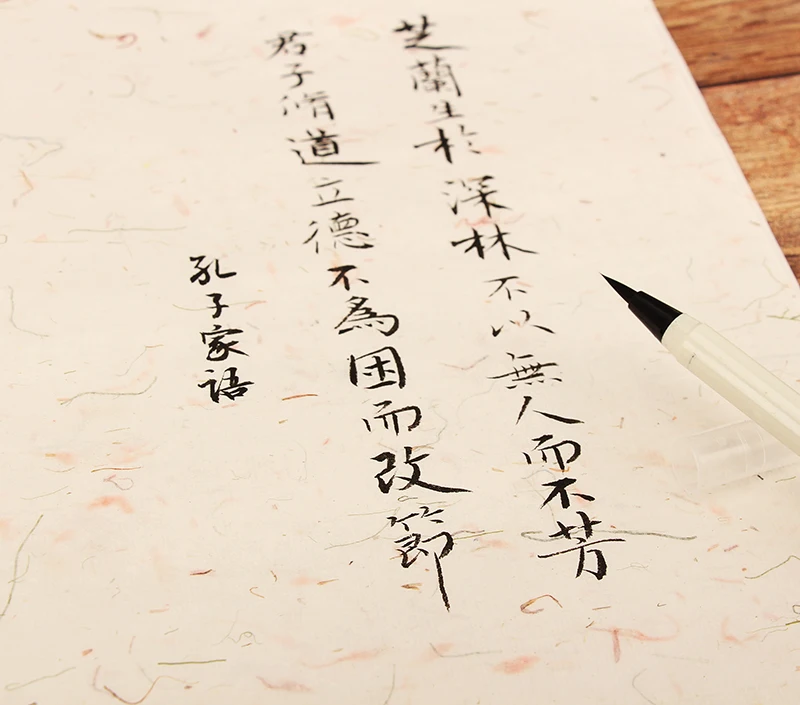 芝蘭生於深林不以無人而不芳
君子脩道立德不為困而改節
孔子家语